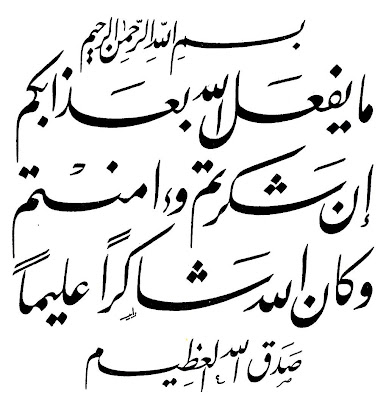 بسم الله الرحمن الرحيم
ما يفعل الله بعذابكم
إن شكرتم وءامنتم
وكان الله شاكرا عليما
صدق الله العظيم